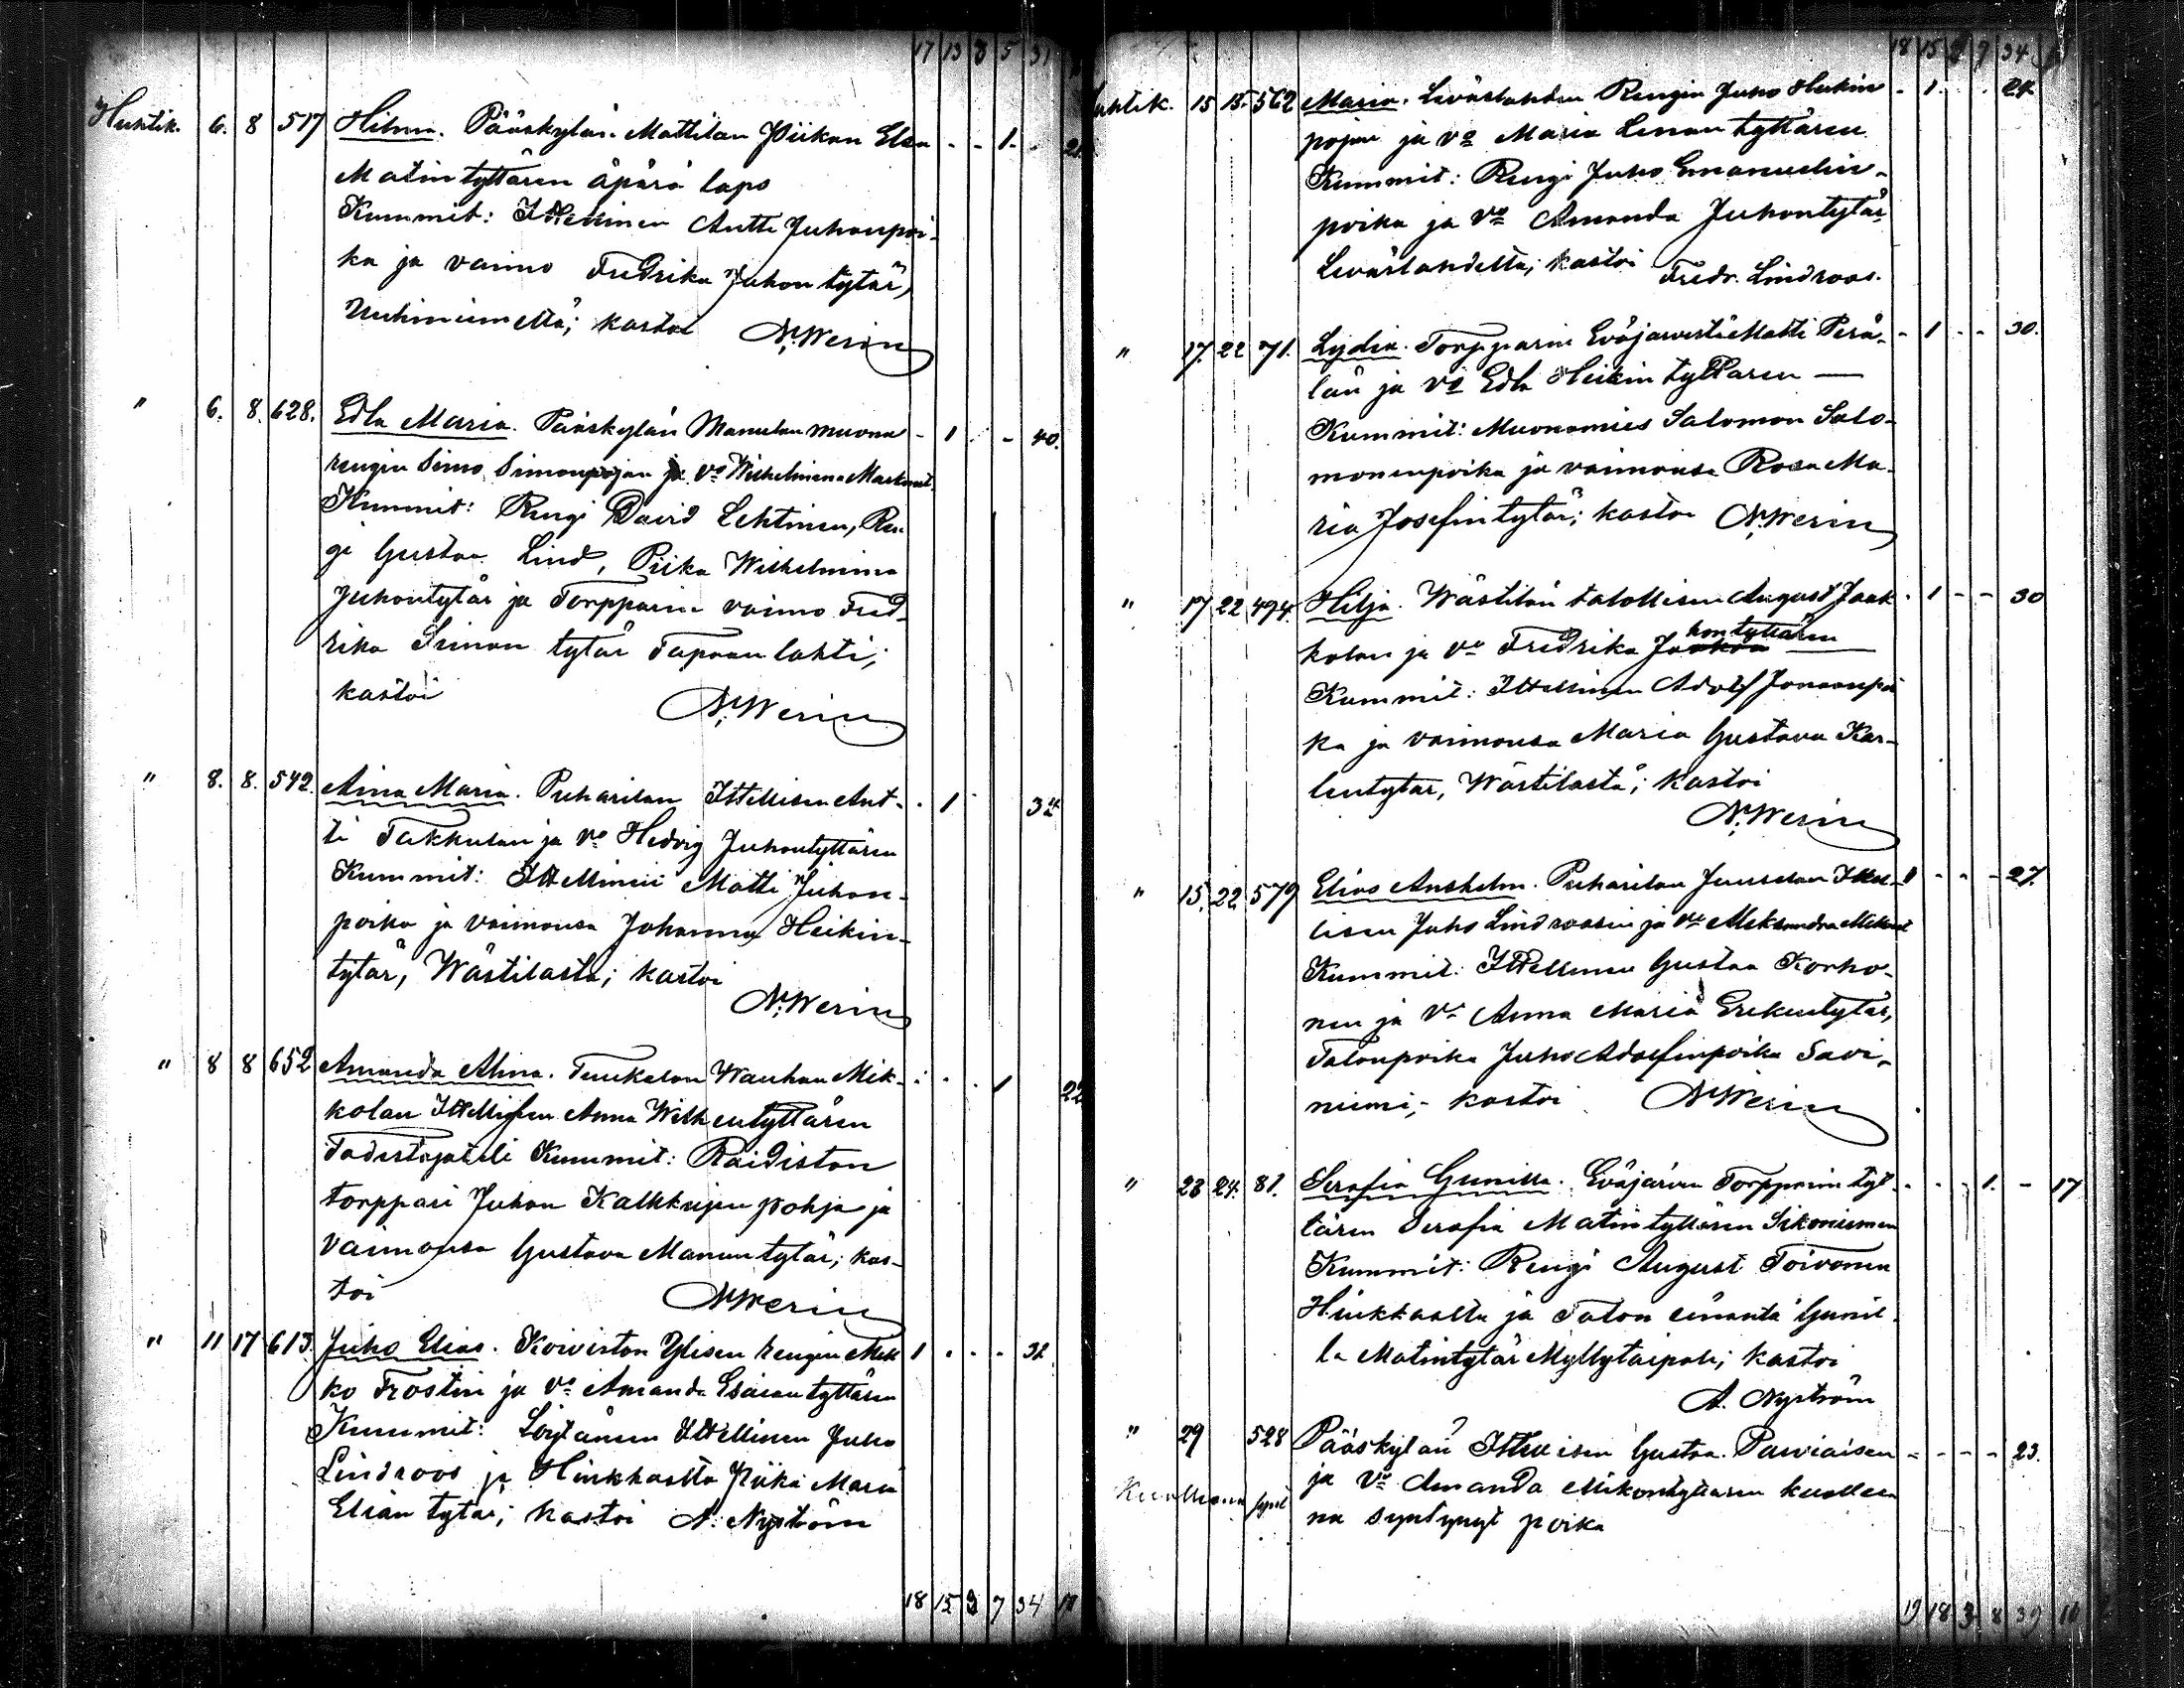 17 13 8 5 31
Huhtik. 6. 8 517 Hilma. Pääskylän Mattilan Piikan Elsa - - 1 -
Matintyttären äpärä laps
Kummit: Ittellinen Antti Juhanpoi-
ka ja vaimo Fredrika Juhontytär,
kastoi N. Werin
" 6. 8. 628. Edla Maria. Pääskylän Manulan muona - 1 - 40.
rengin Simo Simonpojan ja vo Wilhelmina
Kummit: Rengi David Lehtinen, Ren
gi Gustaa Lind, Piika Wilhelmina
Juhontytär ja Torpparin vaimo Fred-
rika Simon tytär Tapaanlahti;
kastoi N. Werin
" 8. 8. 542. Aina Maria. Puharilan Ittellisen Ant- - 1 34
ti Takkulan ja vo Hedvig Juhontyttären
Kummit: Ittellinen Matti Juhon-
poika ja vaimonsa Johanna Heikin-
tytär, Wästilästä; kastoi
N. Werin
" 8 8 652 Amanda Alina. Wanhan Mik- 1 22
kolan Ittellisen Anna tyttären
Kummit:
torppari Juhan Kalkkujenpohja ja
Vaimonsa Gustava Manuntytär; kas-
toi N. Werin
" 11 17 613. Juho Elias. Koiviston Ylisen rengin Mik 1 - - - 32
ko Frostin ja vo Amanda Esaiantyttären
Kummit: Löytänen Ittellinen Juho
Lindroos ja Hinkkaalta Piika Maria
Elian tytär; kastoi A. Nyström
18 15 3 7 34 17
18 15 3 7 34
Huhtik. 15 15. 562 Maria. Levaslahden Rengin Juho Heikin - 1 - - 24
pojan ja vo Maria Leenan tyttären
Kummit: Rengi Juho Emanuelin-
poika ja vo Amanda Juhontytär
Levaslahdelta; kastoi Fredr. Lindroos.
" 17. 22 71. Lydia. Torpparin Eväjärvestä Matti Perä- - 1 - - 30.
län ja vo Edla Heikin tyttären —
Kummit: Muonamies Salomon Salo-
monenpoika ja vaimonsa Rosa Ma-
ria Josefintytär; kastoi N. Werin
" 17 22 494. Hilja. Wästilän talollisen August Jaak - 1 - - 30
kolan ja vo Fredrika Juhontyttären
Kummit: Ittellinen Adolf Jonaanpoi
ka ja vaimonsa Maria Gustava Kar-
lentytär, Wästilästä; kastoi
N. Werin
" 15. 22 579 Elias Anshelm. Puharilan Juuselan Ittel- 1 - - - 27.
lisen Juho Lindroosin ja vo Aleksandra
Kummit: Ittellinen Gustaa Korho-
nen ja vo Anna Maria Erikentytär,
Talonpoika Juho Adolfinpoika Savi-
niemi; - kastoi N. Werin
" 23 24. 81. Serafia Gunilla. Eväjärven Torpparin tyt- - - 1. - 17
tären Serafia Matintyttären Sikoniemen
Kummit: Rengi August Toivonen
Hinkkaalta ja Talon emäntä Gunil-
la Matintytär Myllytaipale; kastoi
A. Nyström
" 29 528 Pääskylän Ittellisen Gustaa Parviaisen - - - - 23.
Kuolleena synt ja vo Amanda Mikontyttären kuollee
na syntynyt poika
19 18 3 8 39 18